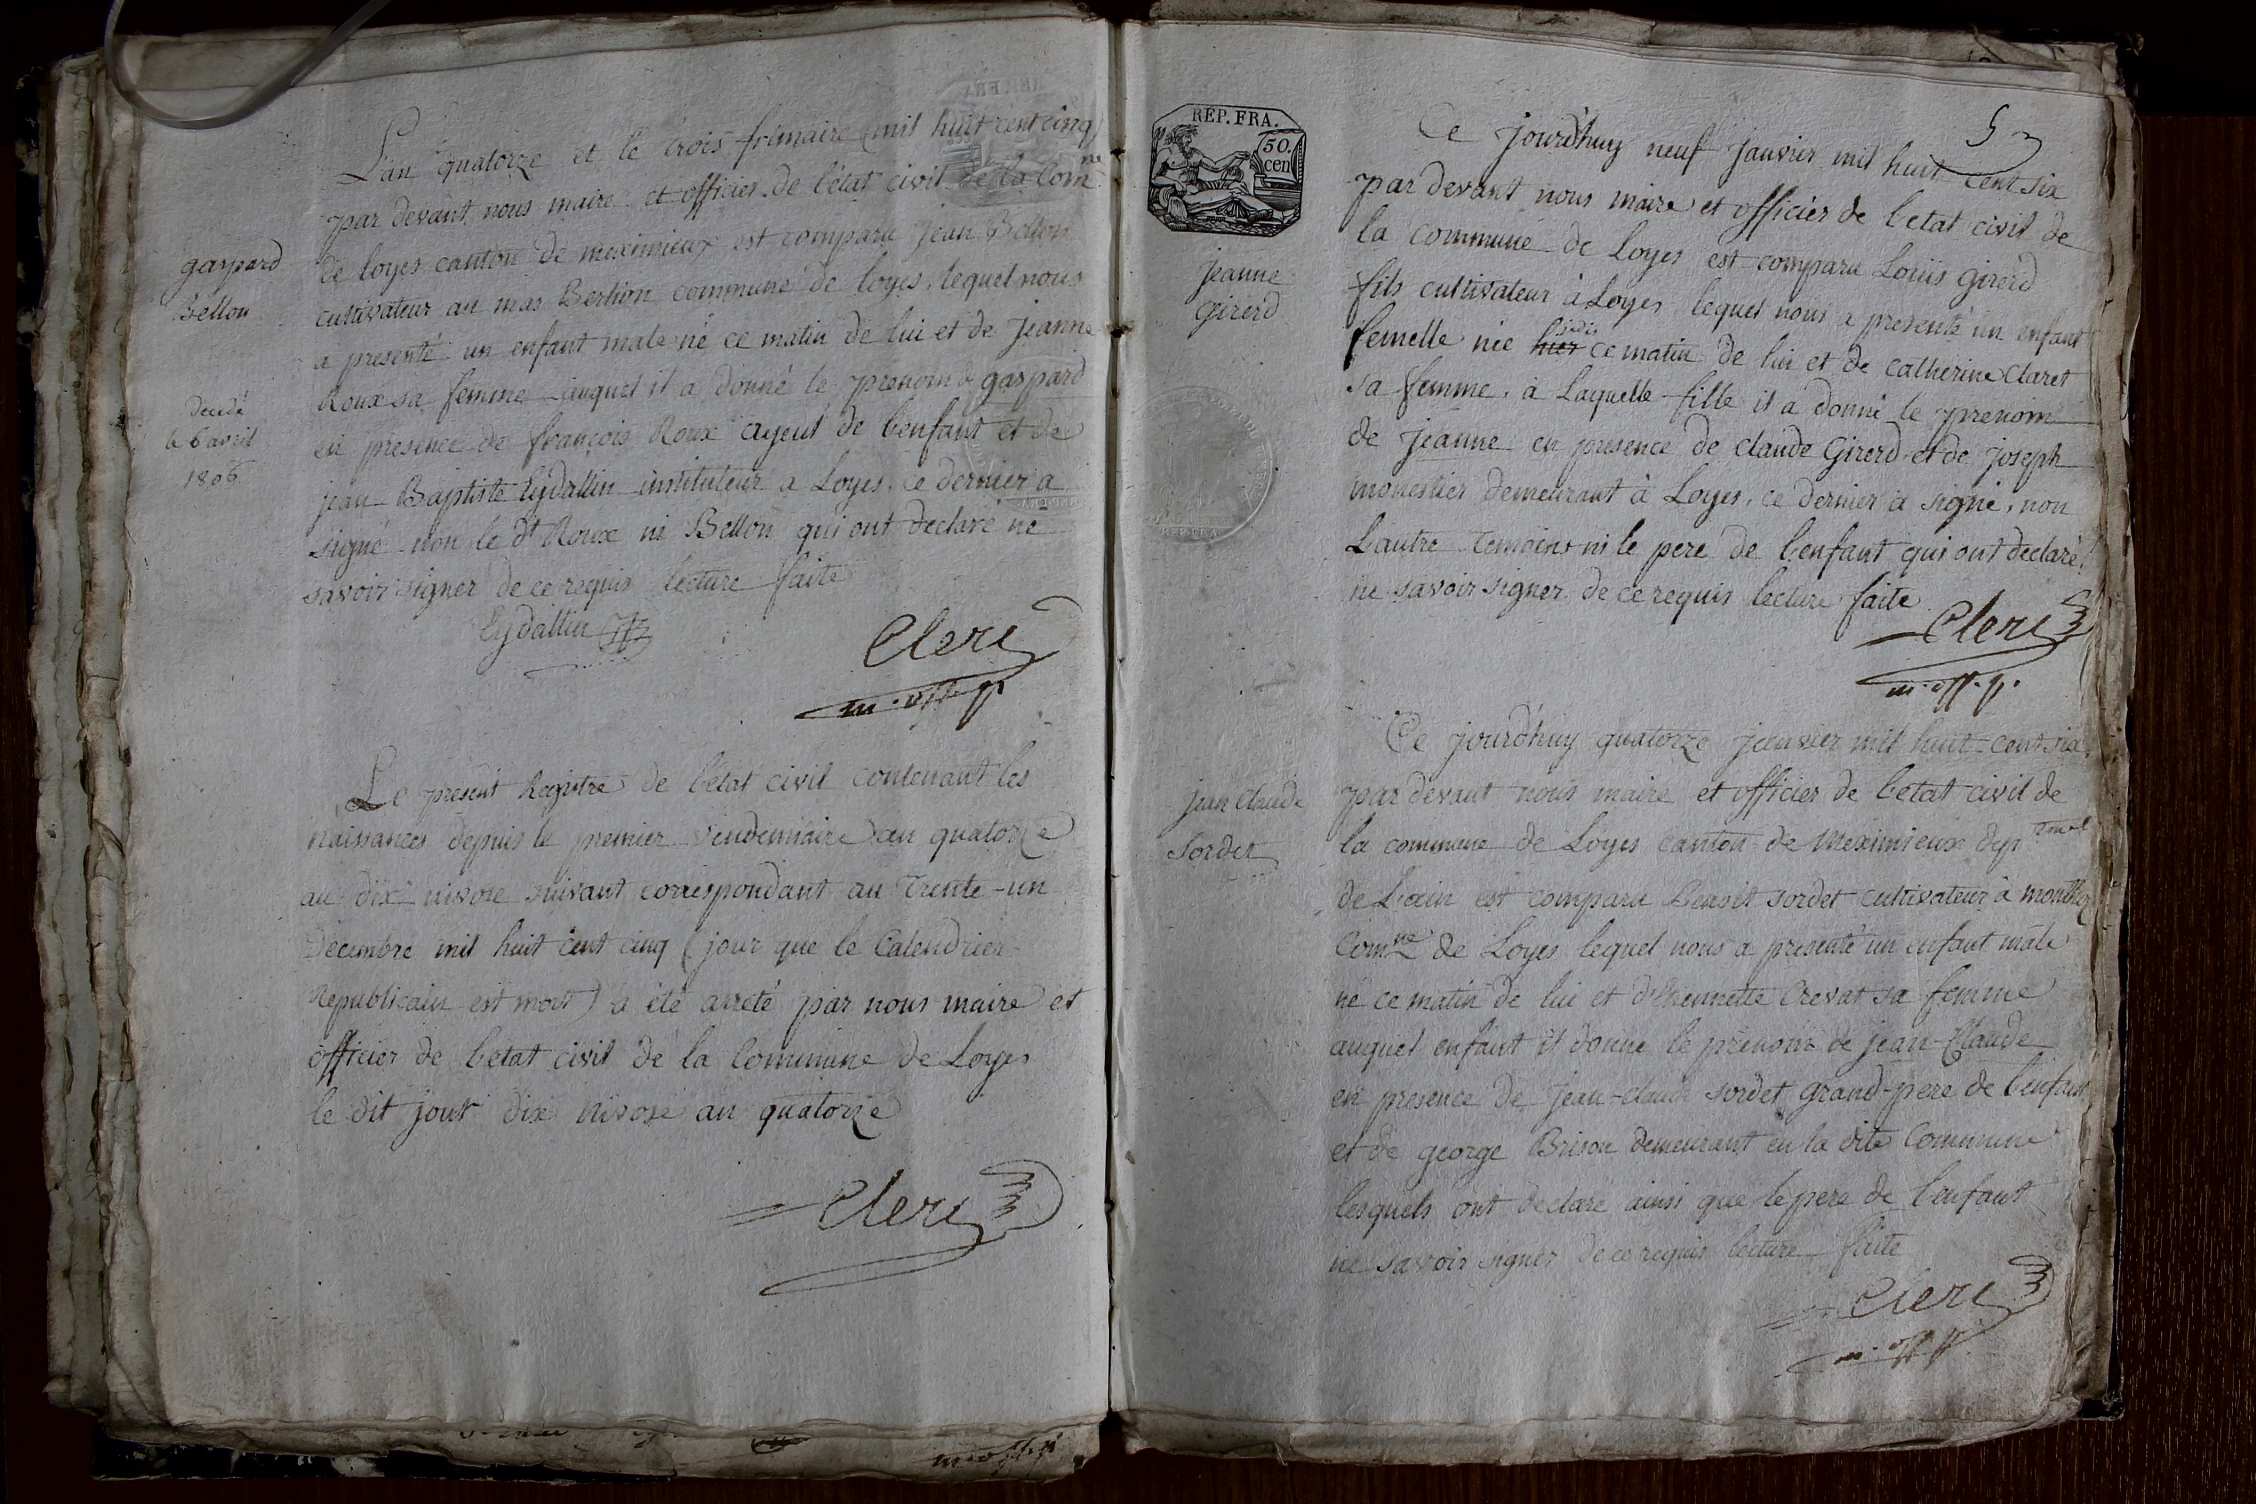 L'an quatorze et le trois frimaire (mil huit cent cinq)
par devant nous maire et officier de l'état civil de la Comne
de loyes canton de meximieux est comparu jean Bellon
cultivateur au mas Berthon commune de loyes, lequel nous
a presenté un enfant male né ce matin de lui et de Jeanne
Roux sa femme auquel il a donné le prenom de gaspard
en presence de françois Roux ayeul de l'enfant et de
jean Baptiste Eydallin instituteur a Loyes, ce dernier a
signé non le dt Roux ni Bellon qui ont declaré ne
savoir signer de ce requis lecture faite
Eydallin
Cleri
m. off. p.
gaspard
Bellon
decedé
le 6 avril
1806
Le present Registre de l'état civil contenant les
naissances depuis le premier vendemiaire an quatorze
au dix nivose suivant correspondant au trente-un
Decembre mil huit cent cinq (jour que le Calendrier
Republicain est mort) a été arreté par nous maire et
officier de l'etat civil de la Commune de Loyes
le dit jour dix nivose an quatorze
Cleri
m. off. p.
REP. FRA.
50.
cen
5
Ce jourd'huy neuf janvier mil huit cent six
par devant nous maire et officier de l'etat civil de
la commune de Loyes est comparu Louis girerd
fils cultivateur à Loyes lequel nous a presenté un enfant
femelle née hier ce matin de lui et de Catherine Claret
sa femme, à Laquelle fille il a donné le prenom
de Jeanne en presence de claude Girerd et de joseph
monestier demeurant à Loyes, ce dernier a signé, non
L'autre temoins ni le pere de l'enfant qui ont declaré
ne savoir signer de ce requis lecture faite
Cleri
m. off. p.
Jeanne
Girerd
Ce jourd'huy quatorze janvier mil huit cent six,
par devant nous maire et officier de l'etat civil de
la commune de Loyes canton de Meximieux dep
de L'ain est comparu Benoit sordet cultivateur à
Comne de Loyes lequel nous a presenté un enfant male
né ce matin de lui et d'thiennette Crevat sa femme
auquel enfant il donne le prenom de jean-Claude
en presence de jean-claude sordet grand-pere de l'enfant
et de george Brison demeurant en la dite Commune
lesquels ont declaré ainsi que le pere de l'enfant
ne savoir signer de ce requis lecture faite
Cleri
m. off. p.
jean Claude
Sordet